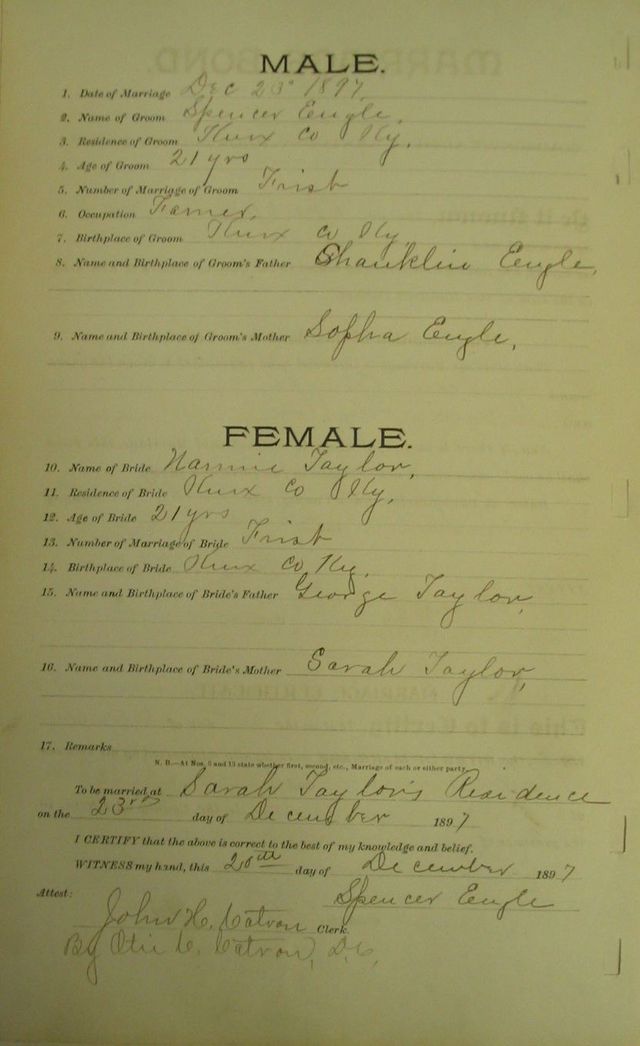 MALE.
1. Date of Marriage Dec 23d 1897
2. Name of Groom Spencer Eugle,
3. Residence of Groom Knox Co Ky,
4. Age of Groom 21 yrs
5. Number of Marriage of Groom Frist
6. Occupation Farmer,
7. Birthplace of Groom Knox Co Ky
8. Name and Birthplace of Groom's Father Shanklin Eugle,
9. Name and Birthplace of Groom's Mother Sopha Eugle,
FEMALE.
10. Name of Bride Nannie Taylor,
11. Residence of Bride Knox Co Ky,
12. Age of Bride 21 yrs
13. Number of Marriage of Bride Frist
14. Birthplace of Bride Knox Co Ky,
15. Name and Birthplace of Bride's Father George Taylor,
16. Name and Birthplace of Bride's Mother Sarah Taylor,
17. Remarks
N. B.—At Nos. 5 and 13 state whether first, second, etc., Marriage of each or either party.
To be married at Sarah Taylors Residence
on the 23rd day of December 1897
I CERTIFY that the above is correct to the best of my knowledge and belief.
WITNESS my hand, this 20th day of December 1897
Spencer Eugle
Attest:
John H. Catron Clerk.
By Otis C. Catron, D.C,